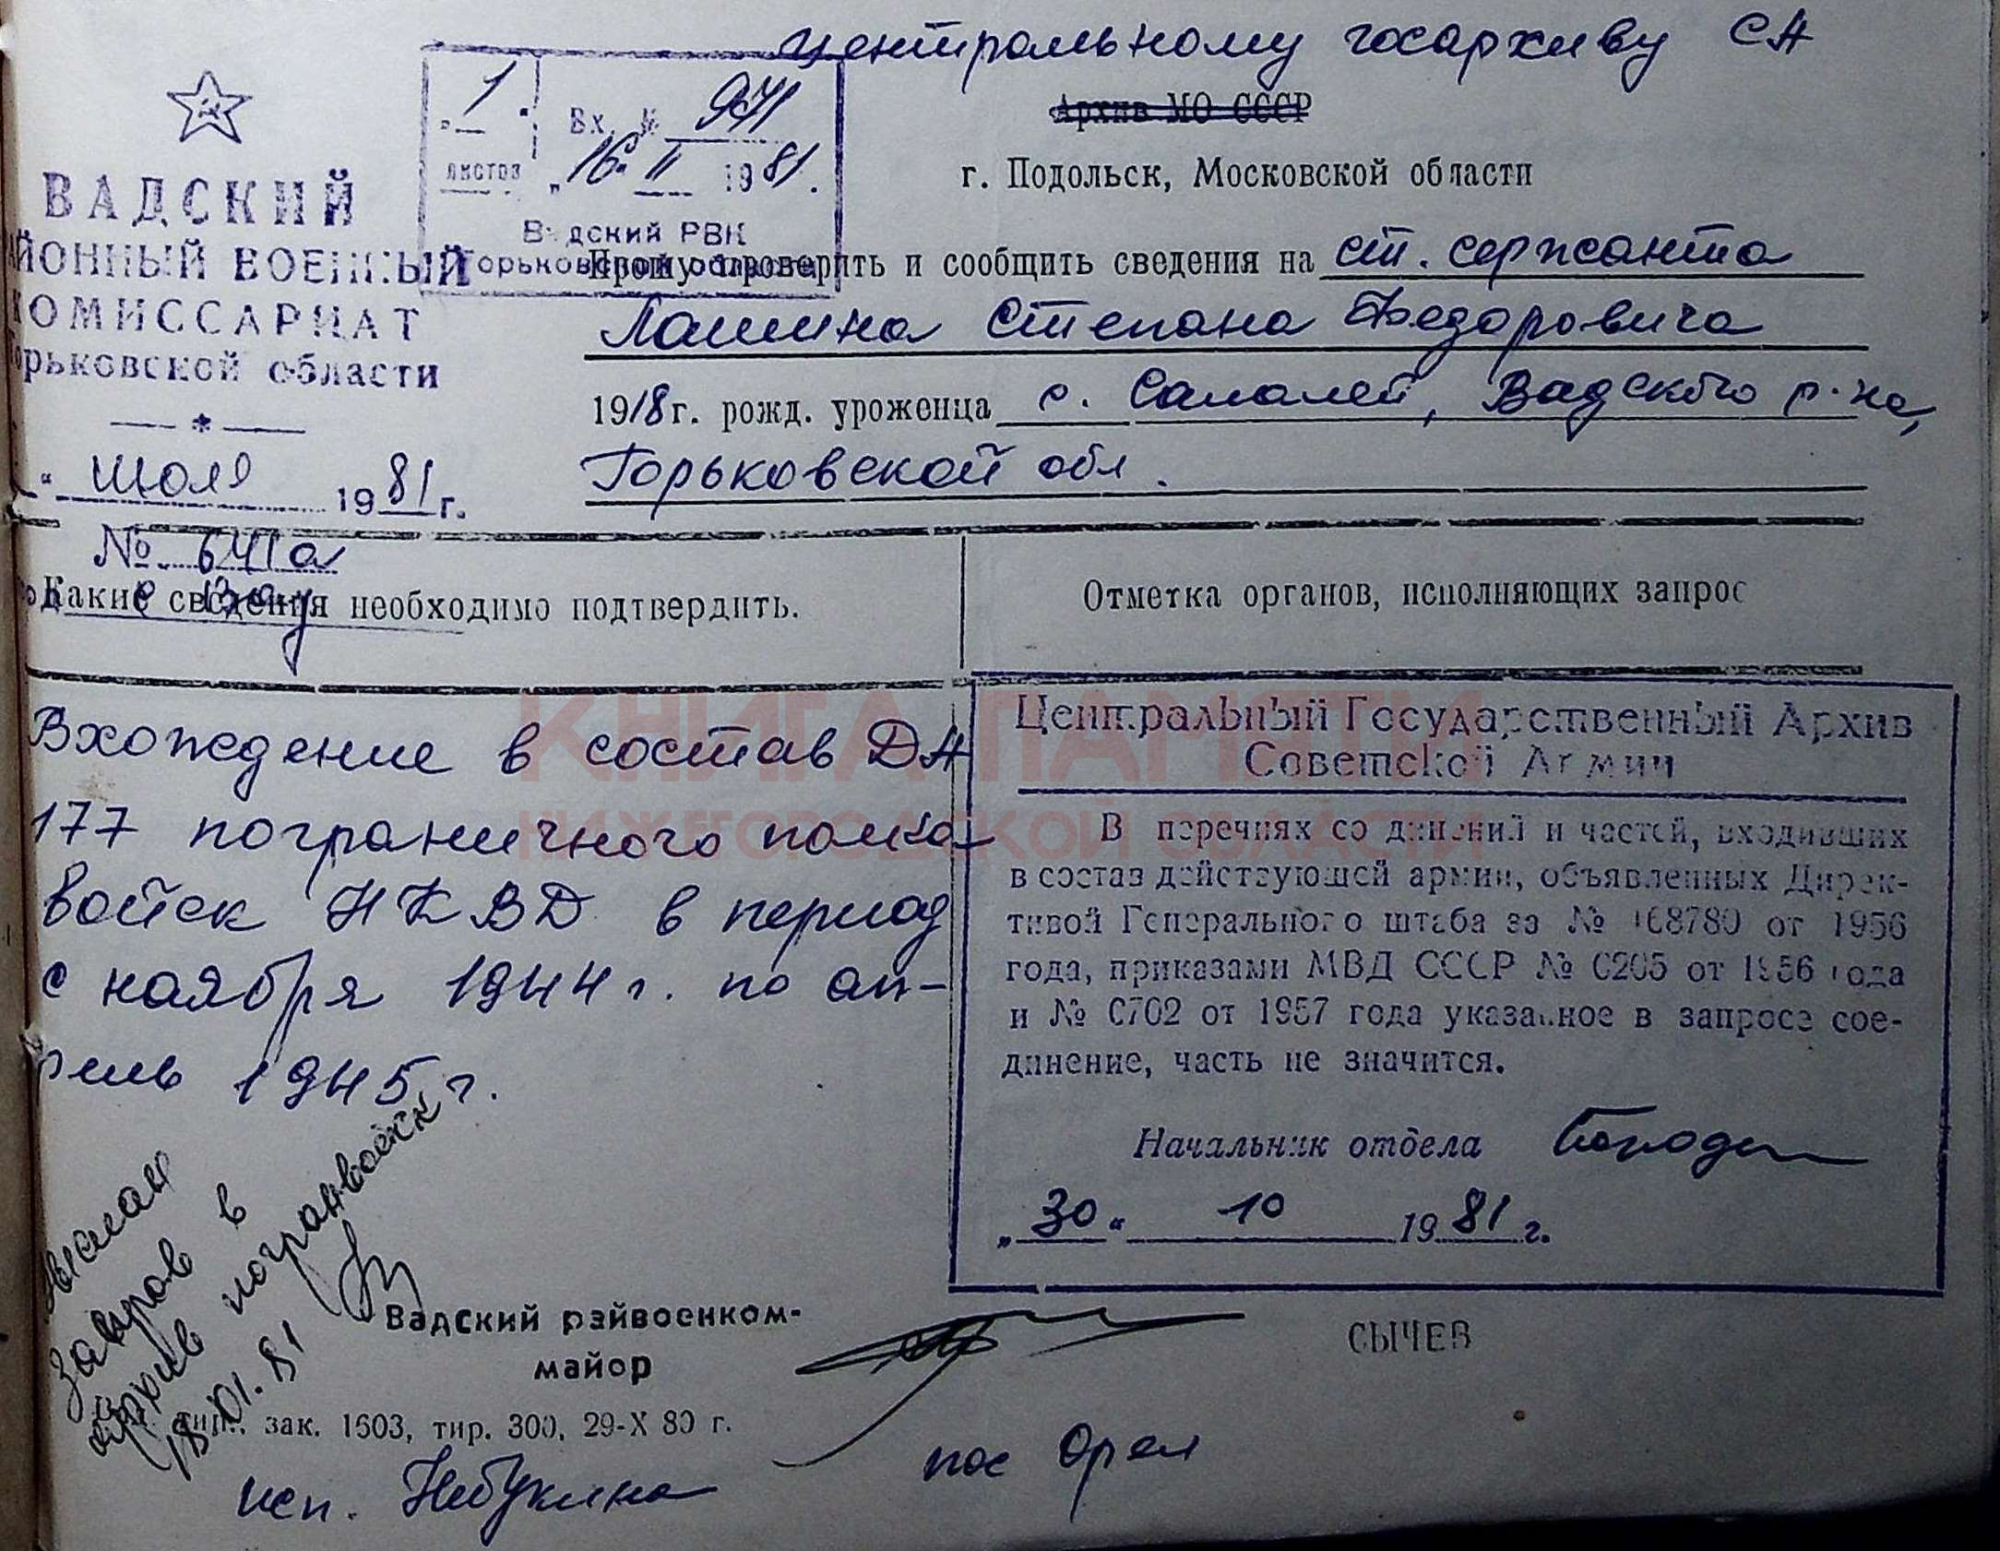 Центральному госархиву СА
Архив МО СССР
г. Подольск, Московской области
1
листов
Вх. № 971
„16" II 1981.
Вадский РВК
Горьковской области
ВАДСКИЙ
АЙОННЫЙ ВОЕННЫЙ
КОМИССАРИАТ
орьковской области
„ июля 1981 г.
№ 641а
с. Вад
Прошу проверить и сообщить сведения на ст. сержанта
Лашина Степана Федоровича
1918 г. рожд. уроженца с. Салалей, Вадского р-на,
Горьковской обл.
Какие сведения необходимо подтвердить.
Отметка органов, исполняющих запрос
Вхождение в состав ДА
177 пограничного полка
войск НКВД в период
с ноября 1944 г. по ап-
рель 1945 г.
Центральный Государственный Архив
Советской Армии
В перечнях соединений и частей, входивших
в состав действующей армии, объявленных Дирек-
тивой Генерального штаба за № 168780 от 1956
года, приказами МВД СССР № 0205 от 1956 года
и № 0702 от 1957 года указанное в запросе сое-
динение, часть не значится.
Начальник отдела
„30" 10 1981 г.
запрос в
архив погранвойск
81
Вадский райвоенком-
майор
СЫЧЕВ
тип. зак. 1603, тир. 300, 29-X 80 г.
исп.
КНИГА ПАМЯТИ
НИЖЕГОРОДСКОЙ ОБЛАСТИ